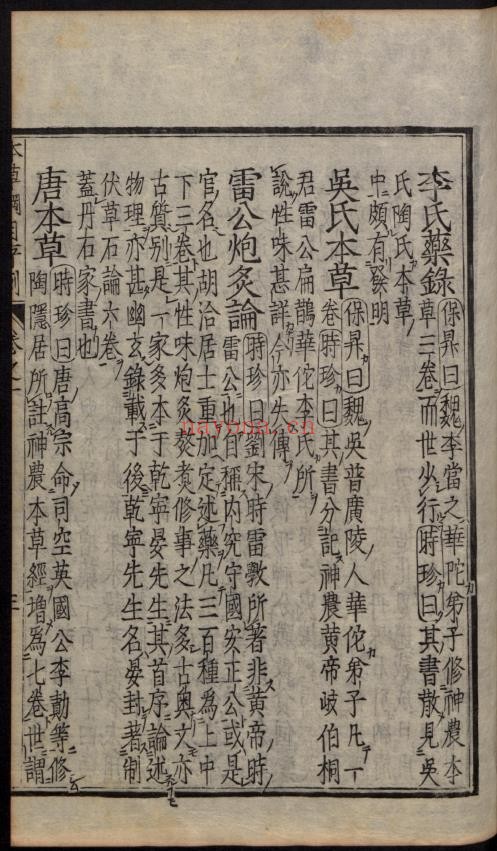 李氏藥錄
保昇曰魏李當之華陀弟子修神農本
草三卷而世少行時珍曰其書散見吳
氏陶氏本草
中頗有發明
吳氏本草
保昇曰魏吳普廣陵人華佗弟子凡一
卷時珍曰其書分記神農黃帝岐伯桐
君雷公扁鵲華佗李氏所
說性味甚詳今亦失傳
雷公炮炙論
時珍曰劉宋時雷斆所著非黃帝時
雷公也自稱内究守國安正公或是
官名也胡洽居士重加定述藥凡三百種爲上中
下三卷其性味炮炙熬煮修事之法多古奧文亦
古質別是一家多本于乾寧晏先生其首序論述
物理亦甚幽玄錄載于後乾寧先生名晏封著制
伏草石論六卷
蓋丹石家書也
唐本草
時珍曰唐高宗命司空英國公李勣等修
陶隱居所註神農本草經增爲七卷世謂